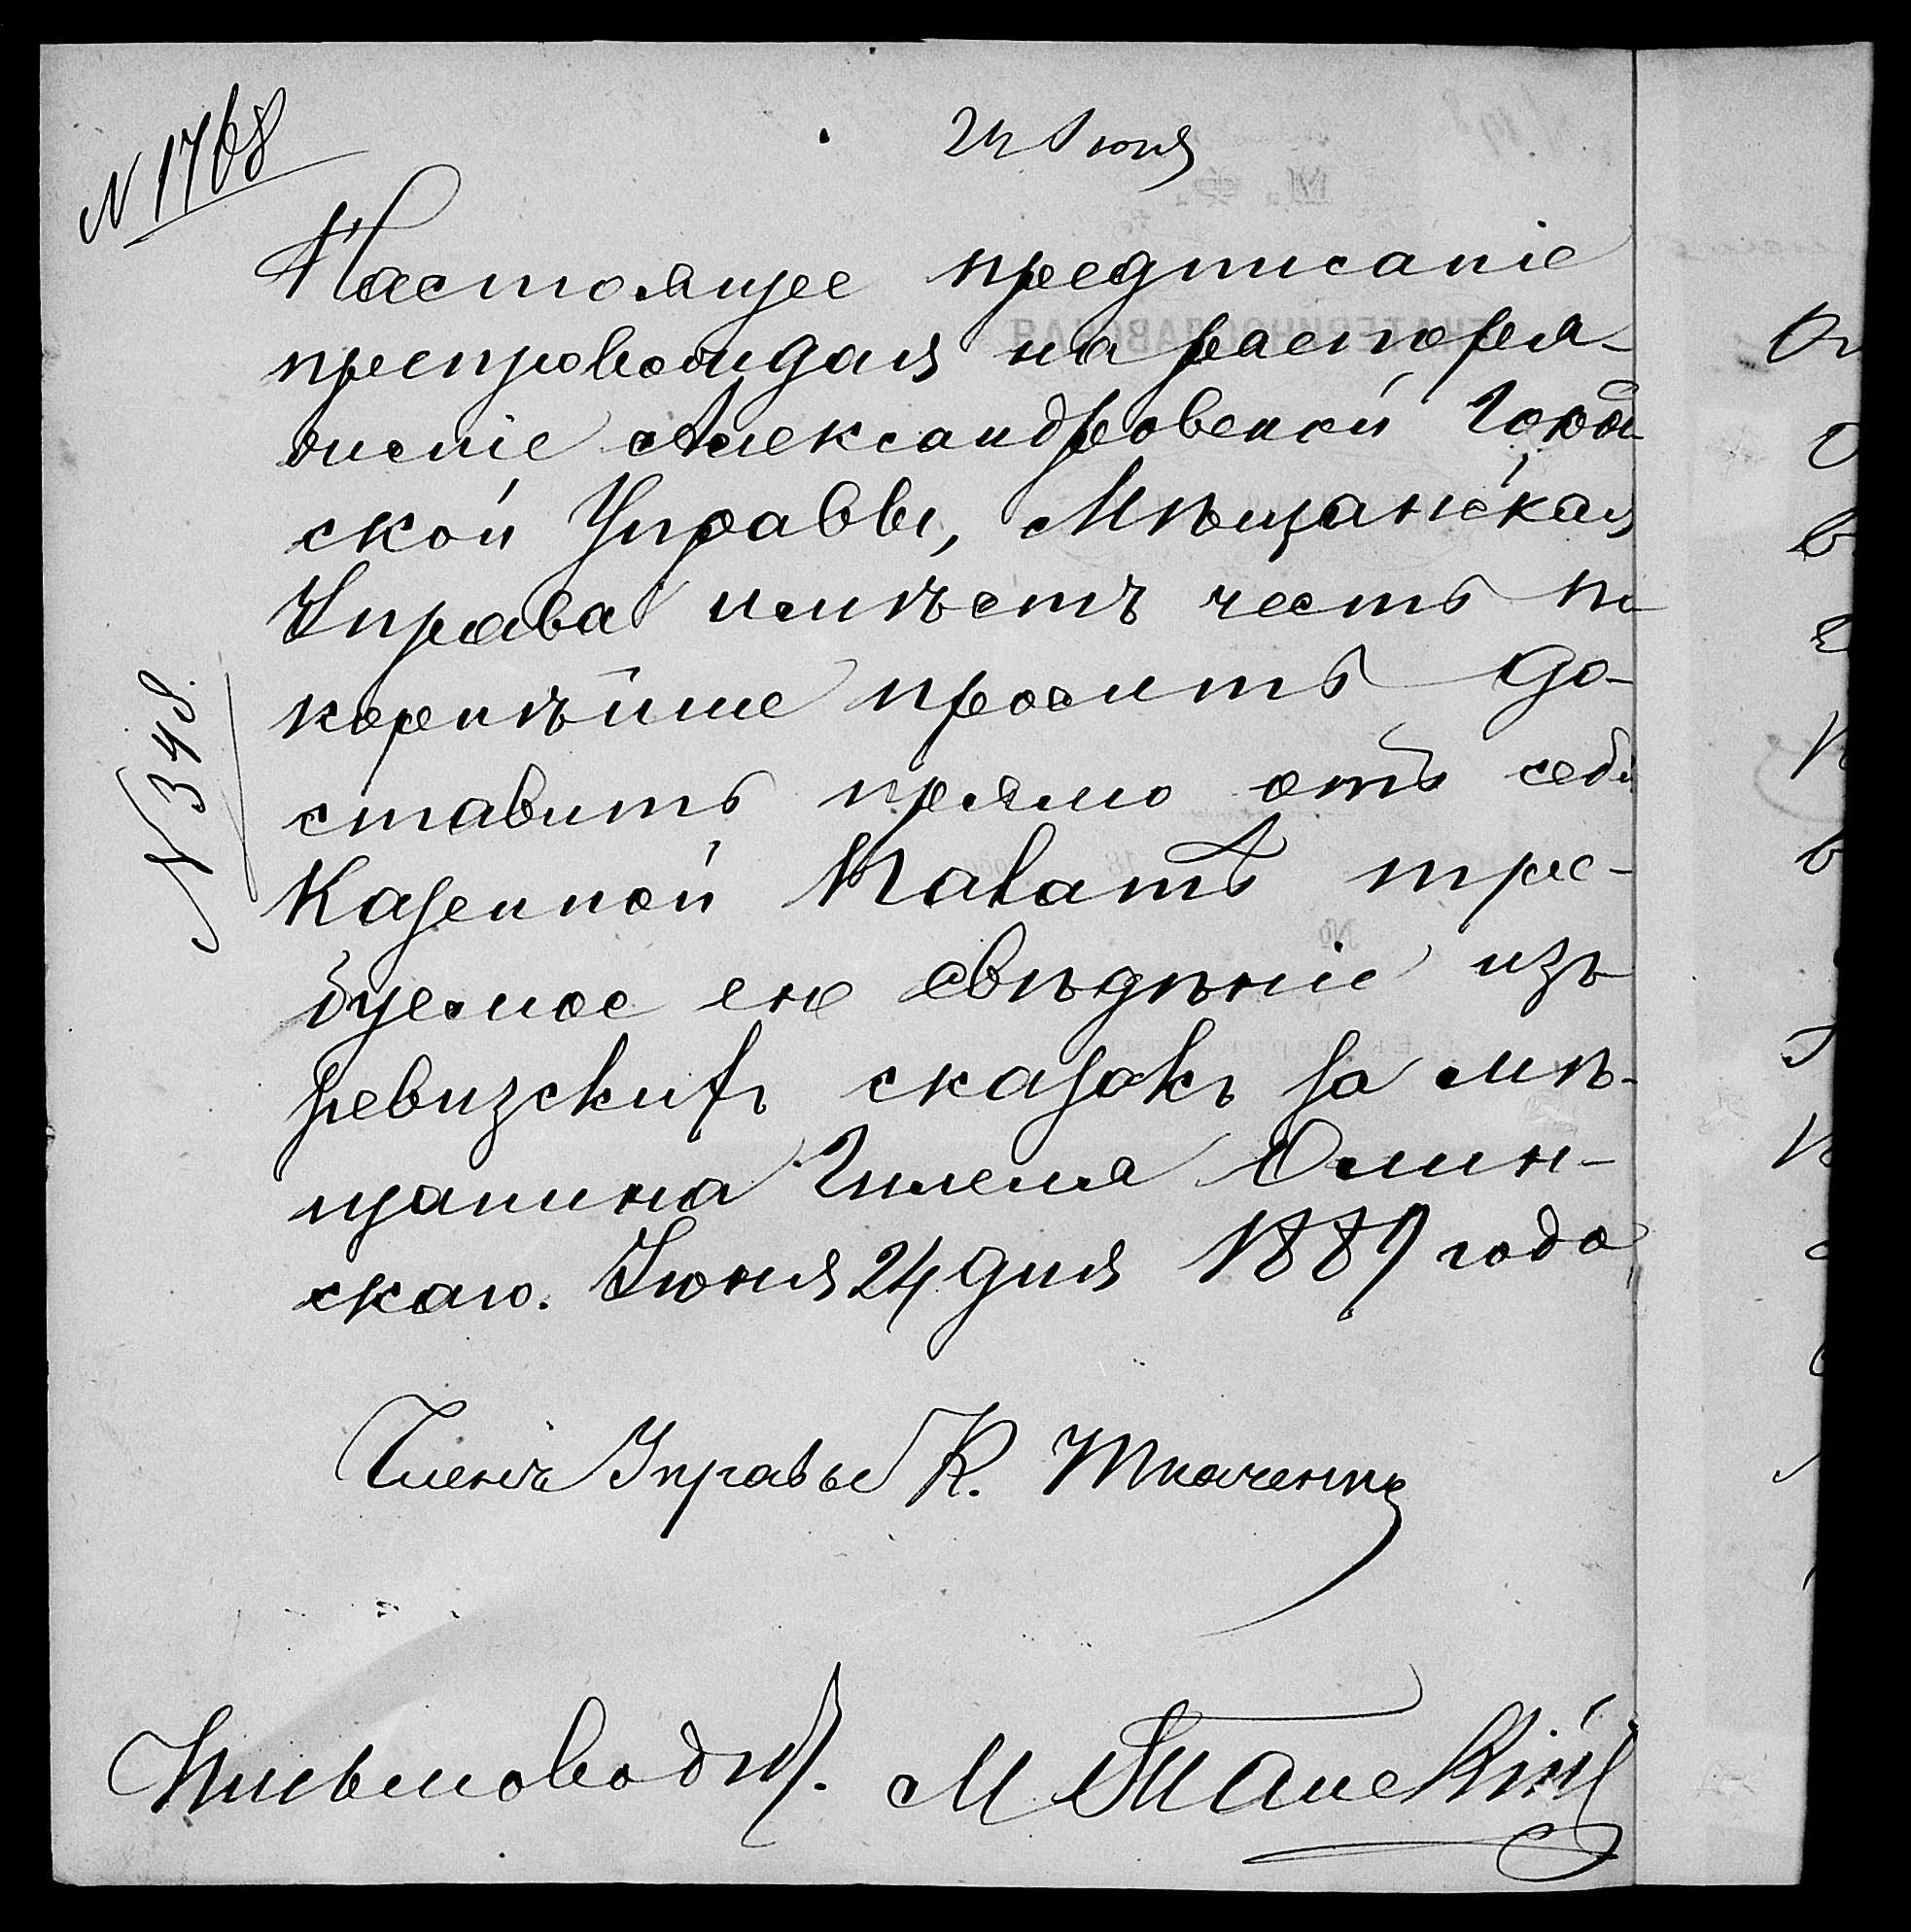 N 1768
24 Июня
Настоящее предписаніе
препровождая на распоря-
женіе Александровской Город
ской Управы, Мѣщанская
Управа имѣетъ честь по
корнѣйше просить до-
ставить прямо отъ себя
N 348.
Казенной Палатѣ тре-
буемое ею свѣдѣніе изъ
ревизскихъ сказокъ за мѣ-
щанина Гилеля Олин-
скаго. Іюня 24 дня 1889 года
Членъ Управы К. Ткаченко
Письмоводит.